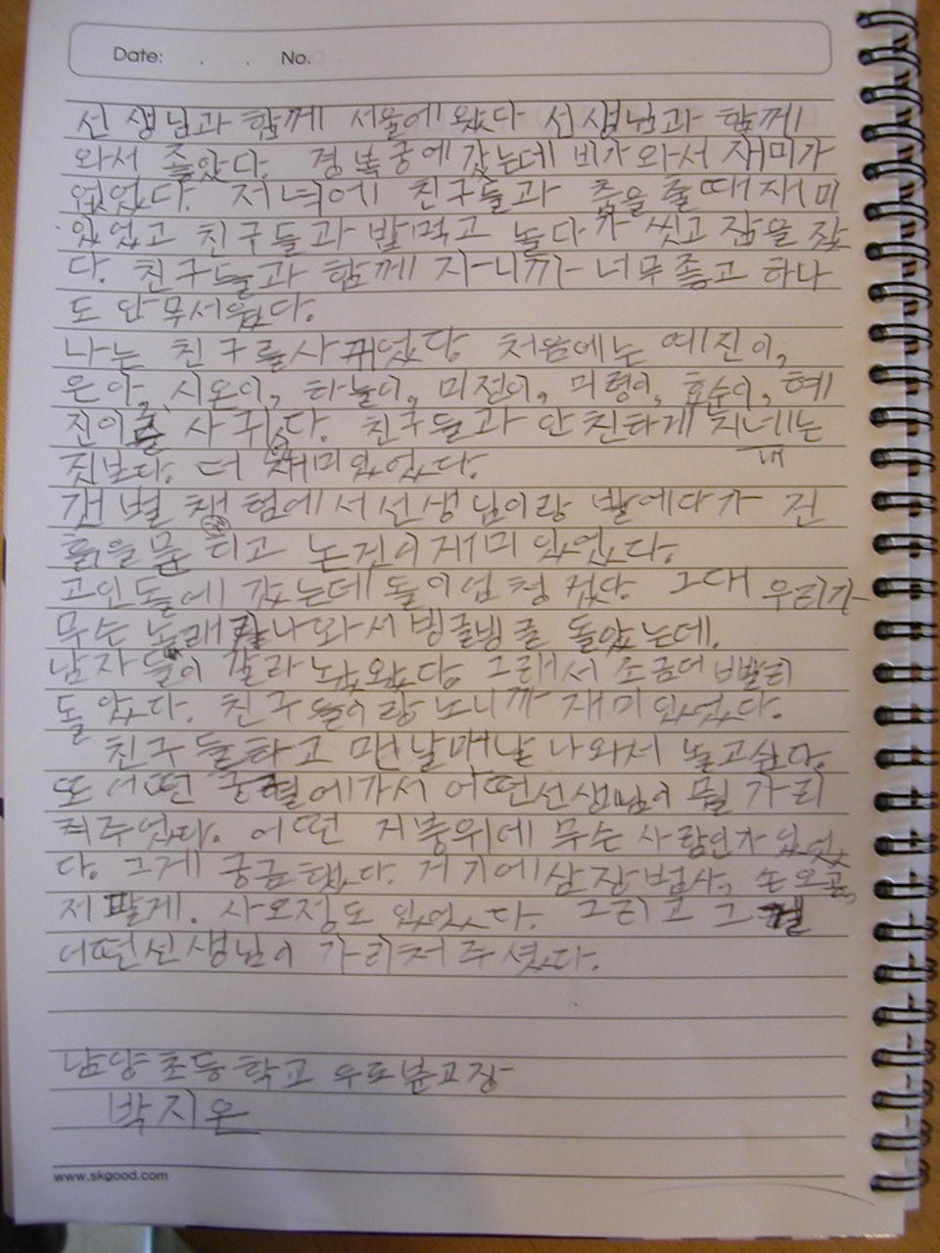 Date: . . No.
선생님과 함께 서울에 왔다 선생님과 함께
와서 좋았다. 경복궁에 갔는데 비가 와서 재미가
없었다. 저녁에 친구들과 춤을 출때 재미
있었고 친구들과 밥먹고 놀다가 씻고 잠을 잤
다. 친구들과 함께 자니까 너무좋고 하나
도 안무서웠다.
나는 친구를사귀었다 처음에는 예진이,
은아, 시온이, 하늘이, 미전이, 미령이, 효순이, 혜
진이를 사귔다. 친구들과 안친하게 지네는
짓보다. 더 재미있었다.
갯벌 체험에서선생님이랑 발에다가 진
흙을묻히고 논건이재미있었다.
고인돌에 갔는데 돌이엄청 컸다. 그대 우리가
무슨 노래 나와서 빙글빙글 돌았는데.
남자들이 갈라놨다. 그래서 조금더 빨리
돌았다. 친구들이랑 노니까 재미있었다.
친구들하고 맨날매날 나와서 놀고싶다.
또 어떤 궁궐에가서 어떤선생님이 뭘 가리
켜주었다. 어떤 지붕위에 무슨 사람인가 있었
다. 그게 궁금했다. 거기에 삼장법사, 손오공,
저팔게. 사오정도 있었다. 그리고 그걸
어떤선생님이 가리처주셨다.
남양초등학교 우도분교장
박지은
www.skgood.com